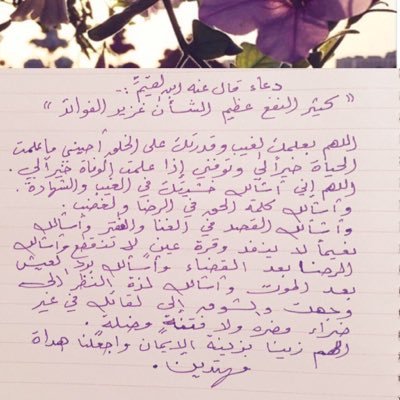 دعاء قال عنه ابن القيّم :..
" كثير النفع عظيم الشأن غزير الفوائد "
اللهم بعلمك لغيب وقدرتك على الخلق أحيني ماعلمت
الحياة خيراً لي وتوفني إذا علمت الوفاة خيراً لي .
اللهم إني أسألك خشيتك في الغيب والشهادة
وأسألك كلمة الحق في الرضا والغضب .
وأسألك القصد في الغنا والفقر وأسألك
نعيماً لا ينفد وقرة عين لا تنقطع وأسألك
الرضا بعد القضاء وأسألك برد لعيش
بعد الموت وأسألك لذة النظر إلى
وجهك والشوق إلى لقائك في غير
ضراء مضره ولا فتنة مضلة .
اللهم زينا بزينة الإيمان واجعلنا هداة
مهتدين .